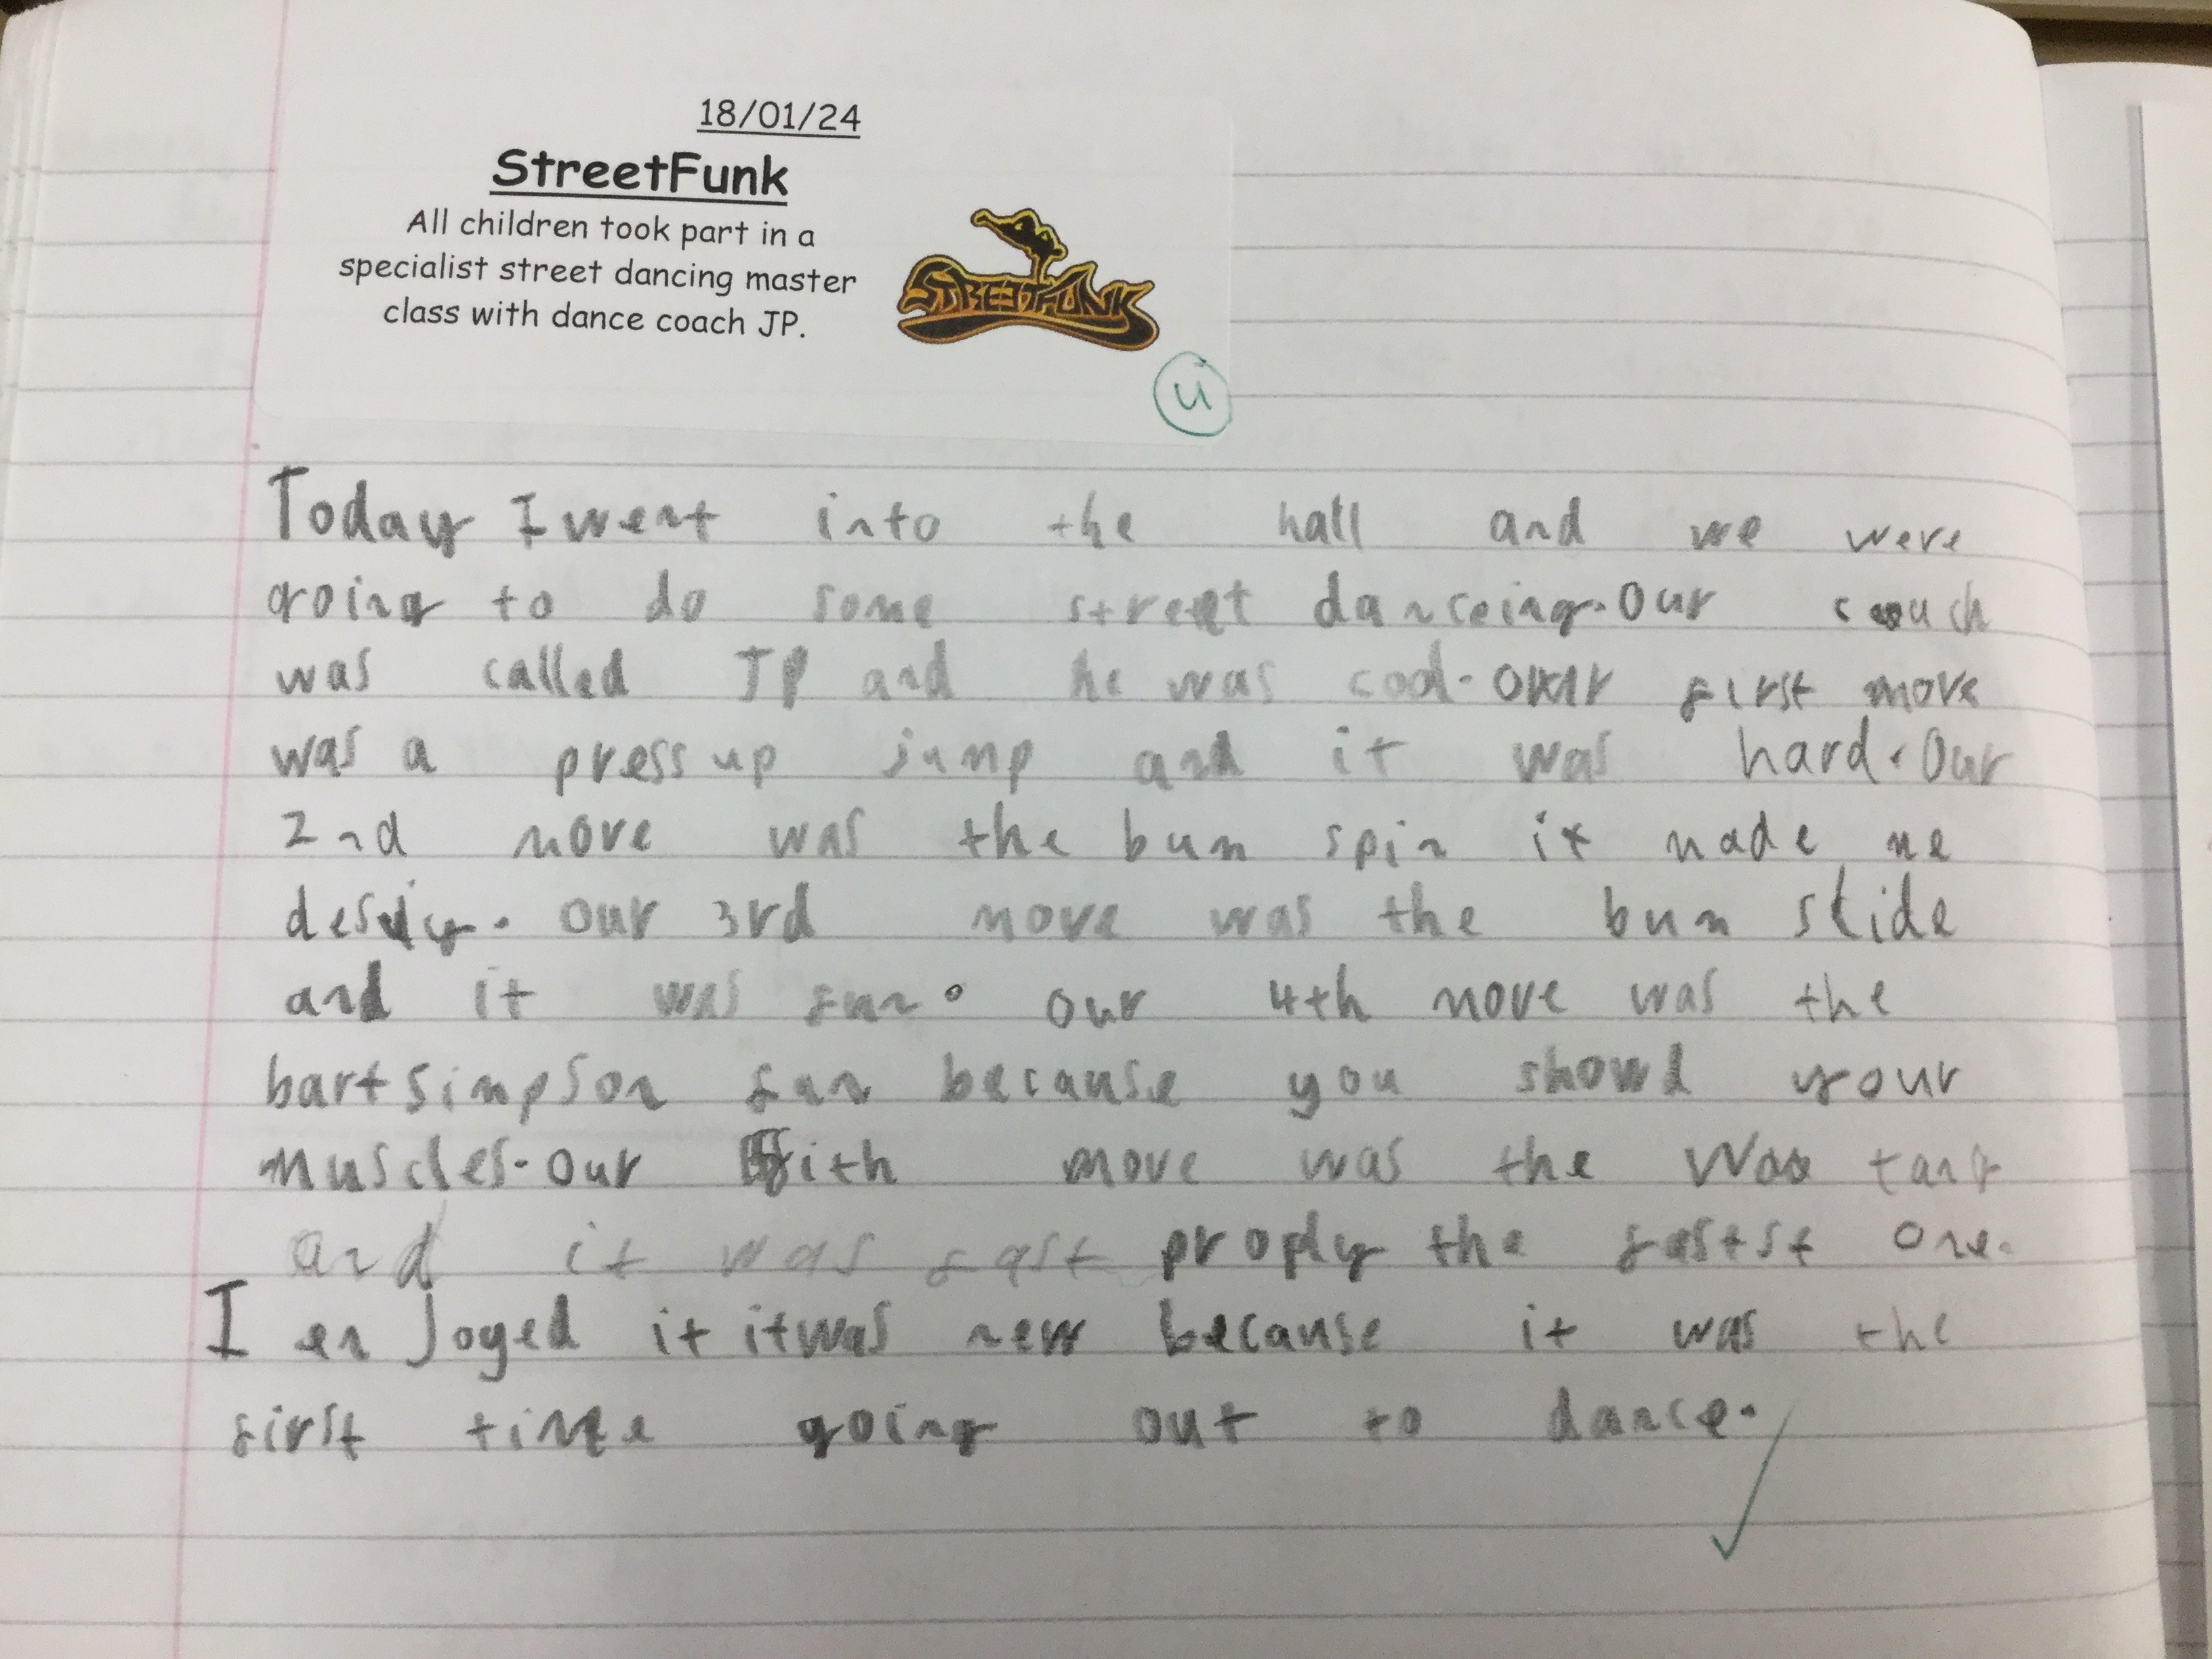 18/01/24
StreetFunk
All children took part in a
specialist street dancing master
class with dance coach JP.
STREETFUNK
U
Today I went into the hall and we were
going to do some street danceing. Our couch
was called JP and he was cool. Our first move
was a press up jump and it was hard. Our
2nd move was the bum spin it made me
our 3rd move was the bum slide
and it was fun. our 4th move was the
bart simpson fun because you showd your
muscles. Our fith move was the
and it was fast proply the fastst one.
I enJoyed it it was new because it was the
first time going out to dance.